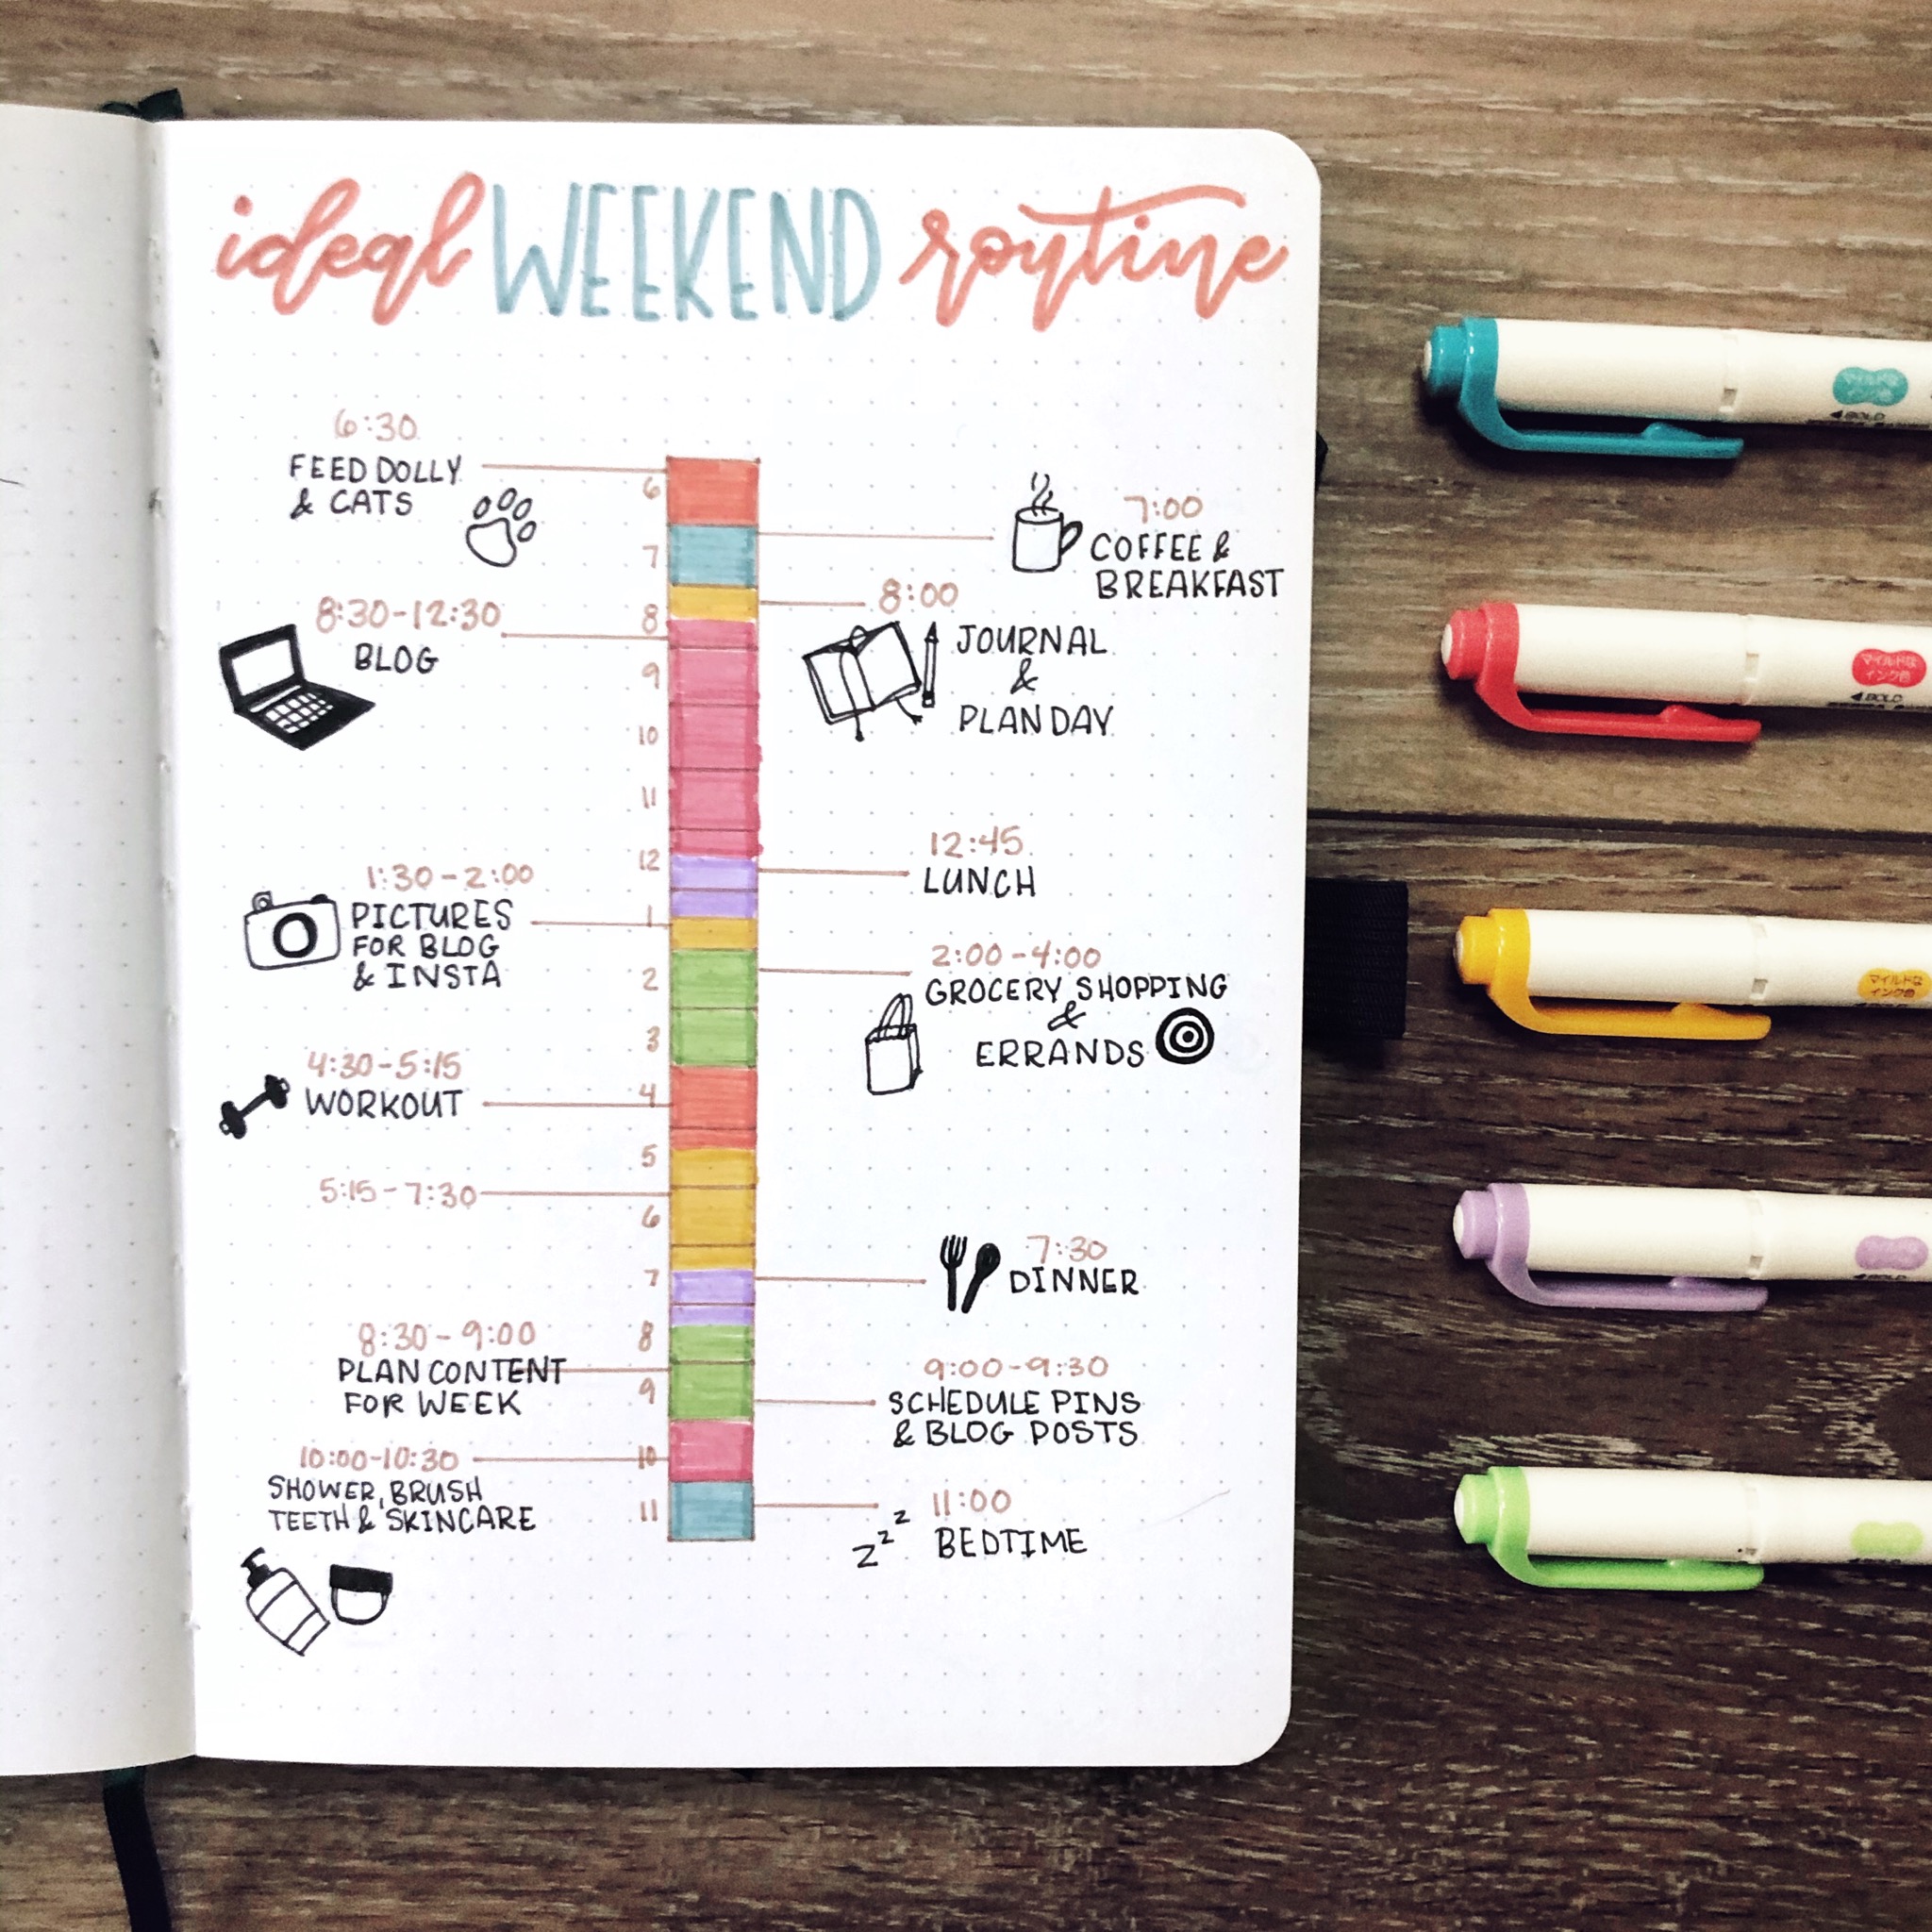 ideal WEEKEND routine
6:30
FEED DOLLY
& CATS
7:00
COFFEE &
BREAKFAST
8:30-12:30
BLOG
8:00
JOURNAL
&
PLAN DAY
12:45
LUNCH
1:30-2:00
PICTURES
FOR BLOG
& INSTA
2:00-4:00
GROCERY SHOPPING
&
ERRANDS
4:30-5:15
WORKOUT
5:15-7:30
7:30
DINNER
8:30-9:00
PLAN CONTENT
FOR WEEK
9:00-9:30
SCHEDULE PINS
& BLOG POSTS
10:00-10:30
SHOWER, BRUSH
TEETH & SKINCARE
11:00
BEDTIME
zzz
6
7
8
9
10
11
12
1
2
3
4
5
6
7
8
9
10
11
BOLD
マイルドな
インク色
BOLD
マイルドな
インク色
BOLD